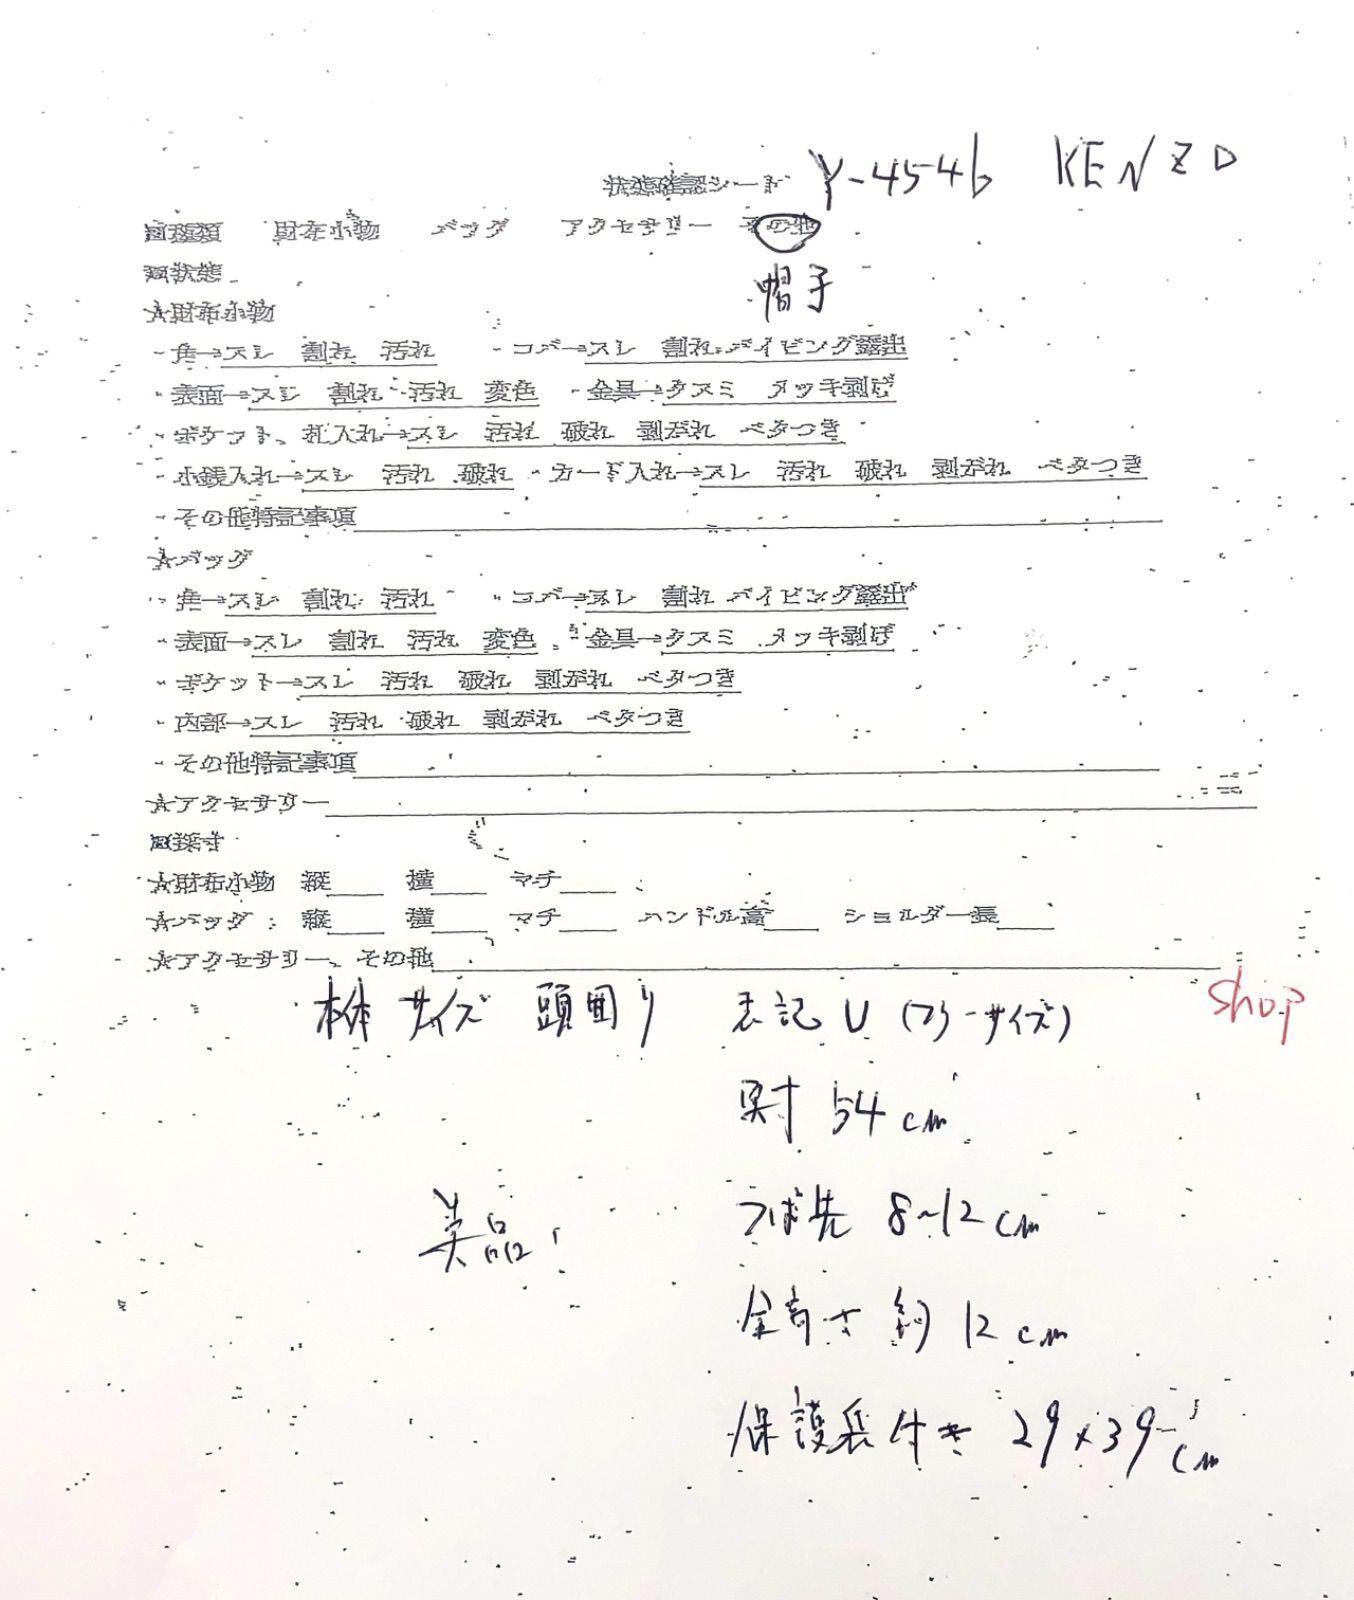 状態確認シート Y-4546 KENZO
■種類 財布小物 バッグ アクセサリー その他
■状態 帽子
★財布小物
・角→スレ 割れ 汚れ ・コバ→スレ 割れ パイピング露出
・表面→スレ 割れ 汚れ 変色 ・金具→クスミ メッキ剥げ
・ポケット、札入れ→スレ 汚れ 破れ 剥がれ ベタつき
・小銭入れ→スレ 汚れ 破れ ・カード入れ→スレ 汚れ 破れ 剥がれ ベタつき
・その他特記事項
★バッグ
・角→スレ 割れ 汚れ ・コバ→スレ 割れ パイピング露出
・表面→スレ 割れ 汚れ 変色 ・金具→クスミ メッキ剥げ
・ポケット→スレ 汚れ 破れ 剥がれ ベタつき
・内部→スレ 汚れ 破れ 剥がれ ベタつき
・その他特記事項
★アクセサリー
■採寸
★財布小物 縦 横 マチ
★バッグ: 縦 横 マチ ハンドル高 ショルダー長
★アクセサリー、その他
本体サイズ 頭囲り 表記 U (フリーサイズ) shop
実寸 54cm
つば先 8~12cm
美品
全高さ 約12cm
保護袋付き 29×39cm